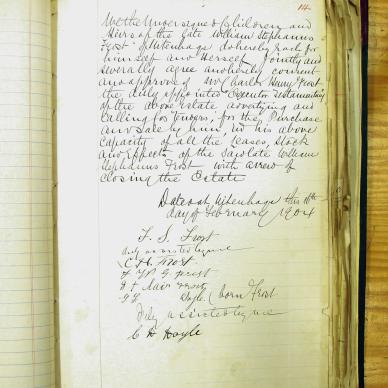 14.
We the Undersigned Children and
Heirs of the late William Stephanus
Frost of Uitenhage do hereby each for
himself and herself, Jointly and
severally agree and hereby consent
and approve of Mr Carl Henry Frost
the duly appointed Executor Testamentary
of the above Estate advertising and
Calling for Tenders, for the Purchase
and Sale by him, in his above
capacity of all the Leases, Stock
and Effects of the said late William
Stephanus Frost with a view of
closing the Estate
Dated at Uitenhage this 16th
day of February 1904
F. S. Frost
duly assisted by me
C H Frost
Frost
Doyle (born Frost
Duly assisted by me
C H Doyle